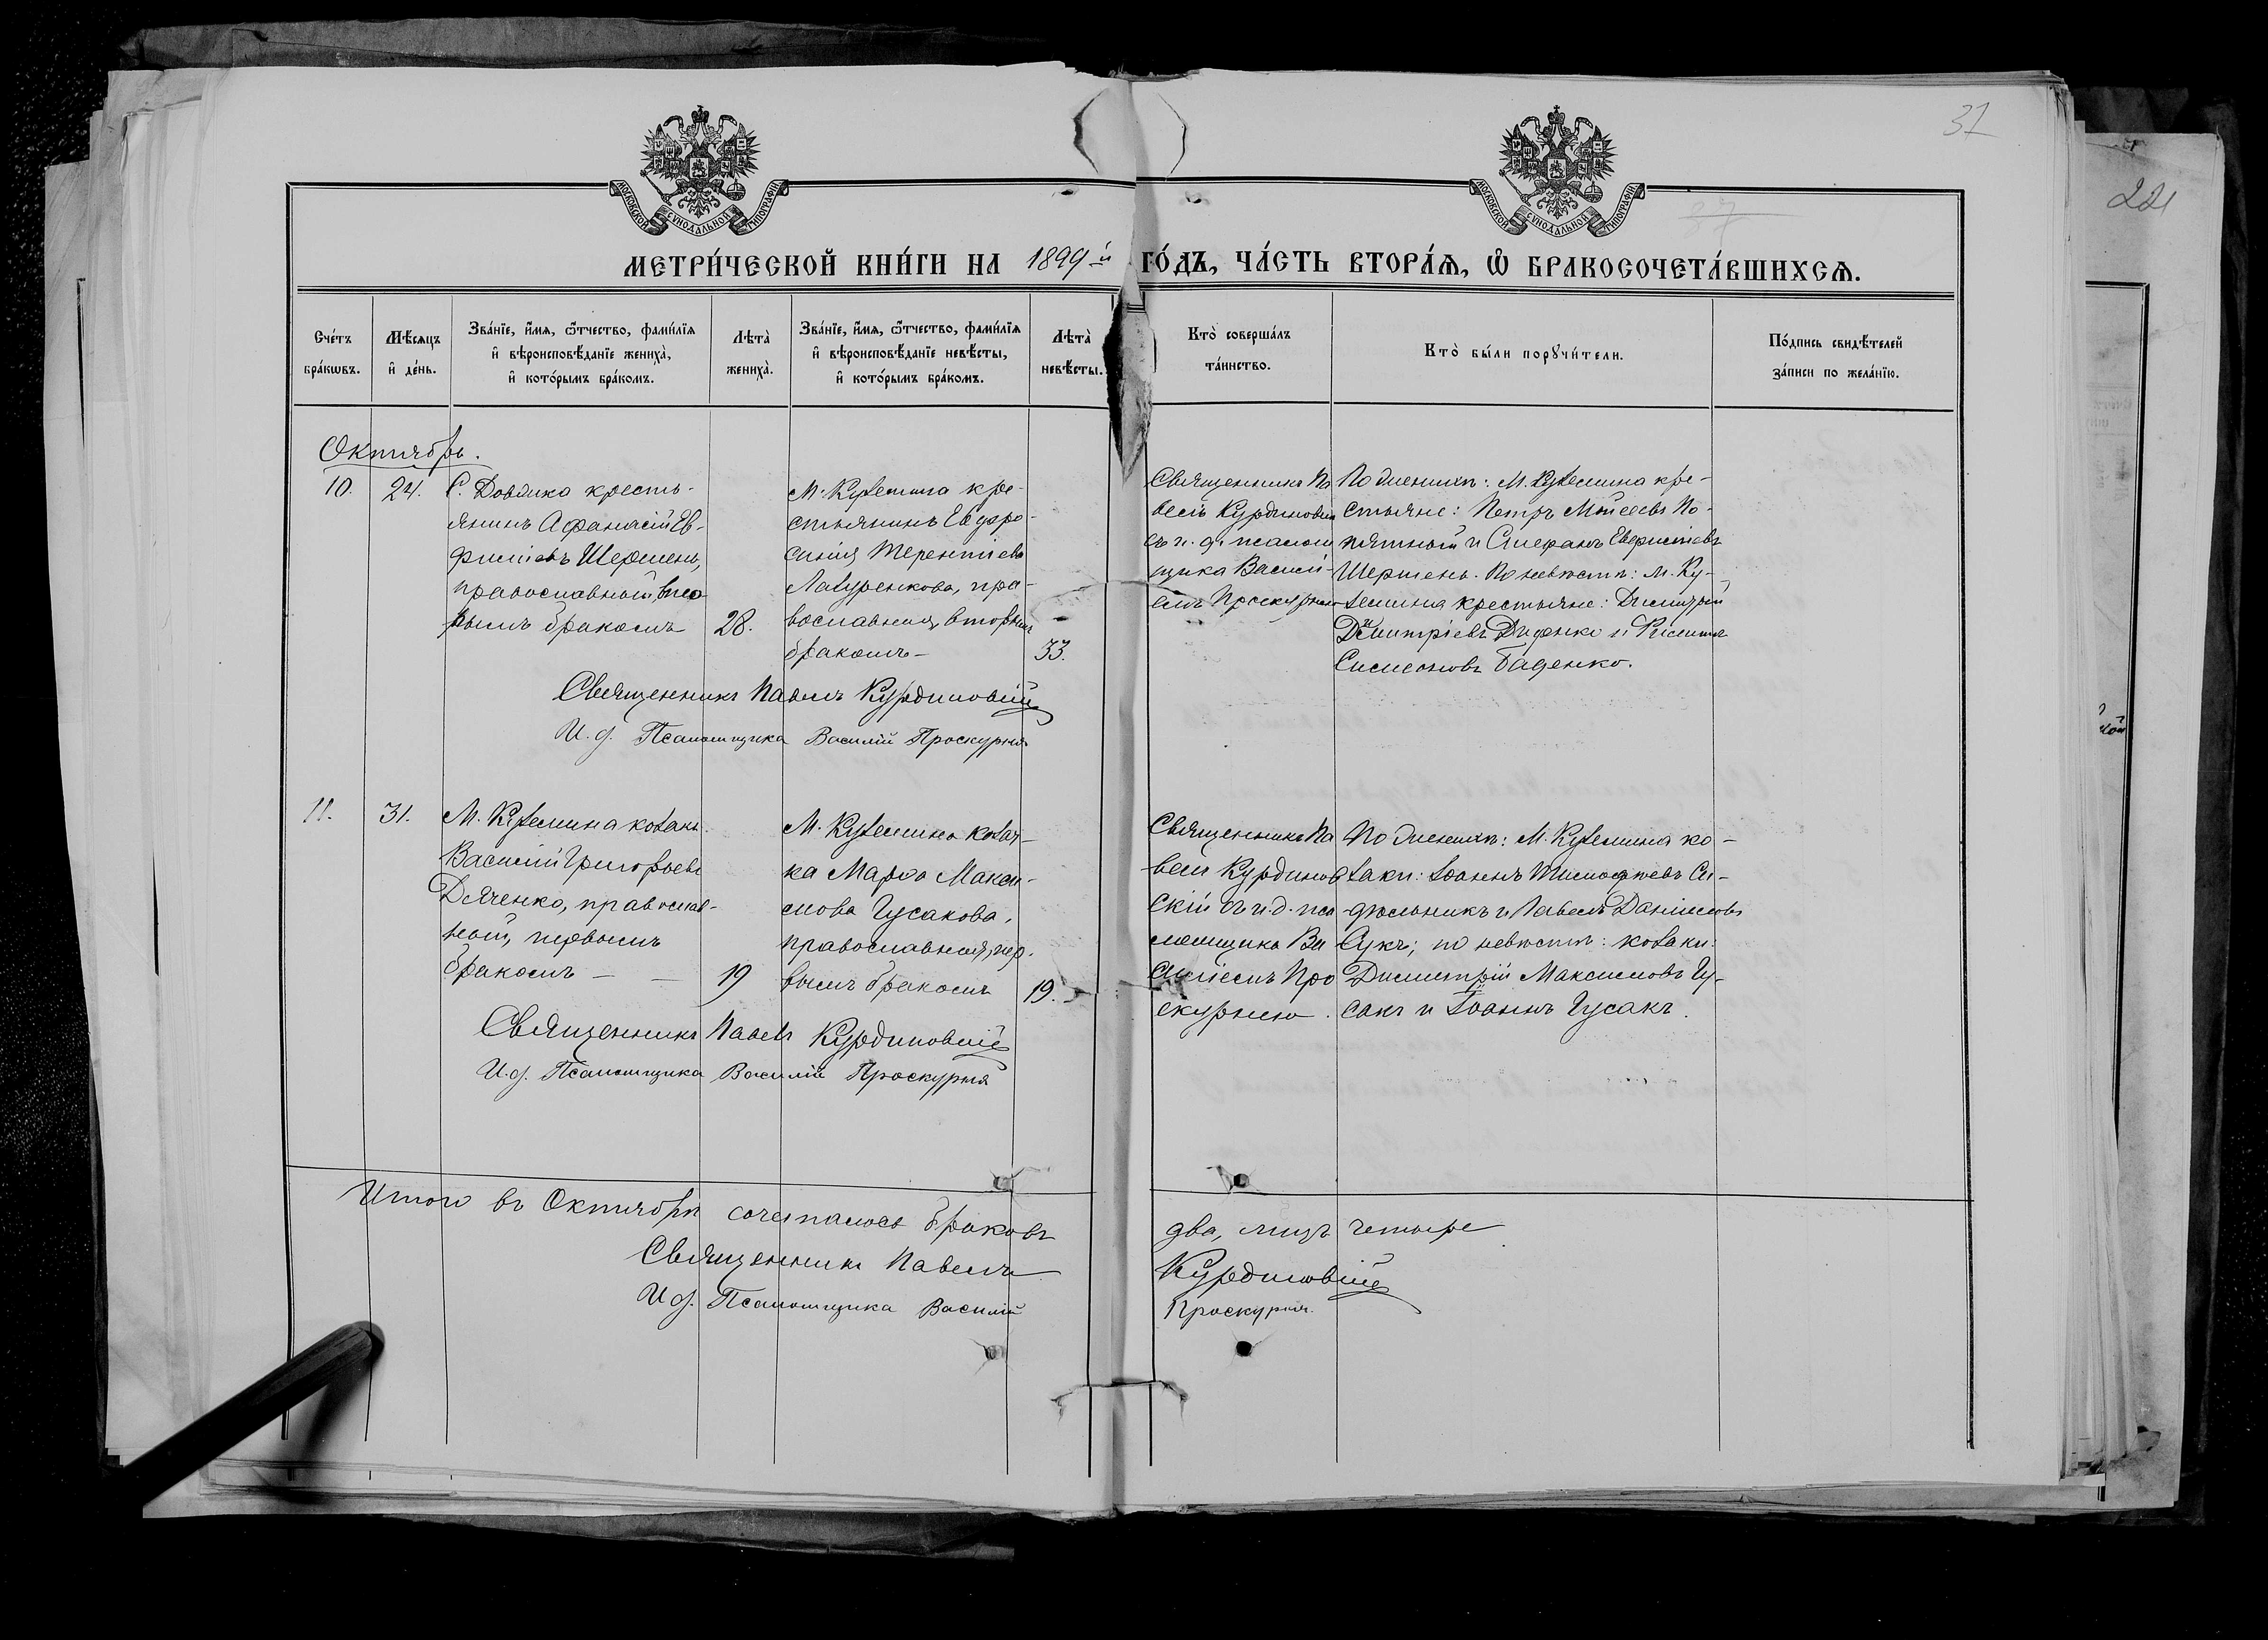 31
221
37
МОСКОВСКОЙ СѴНОДАЛЬНОЙ ТИПОГРАФІИ
МОСКОВСКОЙ СѴНОДАЛЬНОЙ ТИПОГРАФІИ
МЕТРИ́ЧЕСКОЙ КНИ́ГИ НА 1899й ГО́ДЪ, ЧА́СТЬ ВТОРА́Я, Ѡ҆ БРАКОСОЧЕТА́ВШИХСЯ.
Сче́тъ бра́кѡвъ.
Мѣ́сяцъ и҆ де́нь.
Зва́нїе, и҆́мя, ѻ҆́тчество, фами́лїя и҆ вѣроисповѣ́данїе жениха̀, и҆ кото́рымъ бра́комъ.
Лѣта̀ жениха̀.
Зва́нїе, и҆́мя, ѻ҆́тчество, фами́лїя и҆ вѣроисповѣ́данїе невѣ́сты, и҆ кото́рымъ бра́комъ.
Лѣта̀ невѣ́сты.
Кто̀ соверша́лъ та́инство.
Кто̀ бы́ли порꙋчи́тели.
По́дпись свидѣ́телей за́писи по жела́нїю.
Октябрь.
10.
24.
С. Довжико кресть-
янинъ Афанасій Ев-
фиміевъ Шершень,
православный, вто
рымъ бракомъ
28.
М. Куземина кре-
стьянинъ Евфро-
синія Терентіева
Лазуренкова, пра-
вославная, вторымъ
бракомъ-
33.
Священникъ Па
велъ Курдиновскій
съ и. д. псалом
щика Василі-
емъ Проскурнею
По женихѣ: М. Куземина кре-
стьяне: Петръ Моисеевъ По-
пятный и Стефанъ Евфиміевъ
Шершень. По невѣстѣ: М. Ку-
земина крестьяне: Димитрій
Димитріевъ Диденко и Никита
Симеоновъ Баденко.
Священникъ Павелъ Курдиновскій
И. д. Псаломщика Василій Проскурня
11.
31.
М. Куземина козакъ
Василій Григорьевъ
Дяченко, православ-
ный, первымъ
бракомъ - -
19
М. Куземина козач-
ка Марѳа Макси-
мова Гусакова,
православная, пер-
вымъ бракомъ
19.
Священникъ Па
велъ Курдинов
скій съ и. д. пса
ломщика Ва
силіемъ Про
скурнею.
По женихѣ: М. Куземина ко-
заки: Іоаннъ Тимофеевъ Си-
дѣльникъ и Павелъ Даніиловъ
Сукъ; по невѣстѣ: козаки:
Димитрій Максимовъ Гу-
сакъ и Іоаннъ Гусакъ.
Священникъ Павелъ Курдиновскій
И. д. Псаломщика Василій Проскурня
Итого въ Октябрѣ сочеталось браковъ два, лицъ четыре
Священникъ Павелъ Курдиновскій
И д. Псаломщика Василій Проскурня.